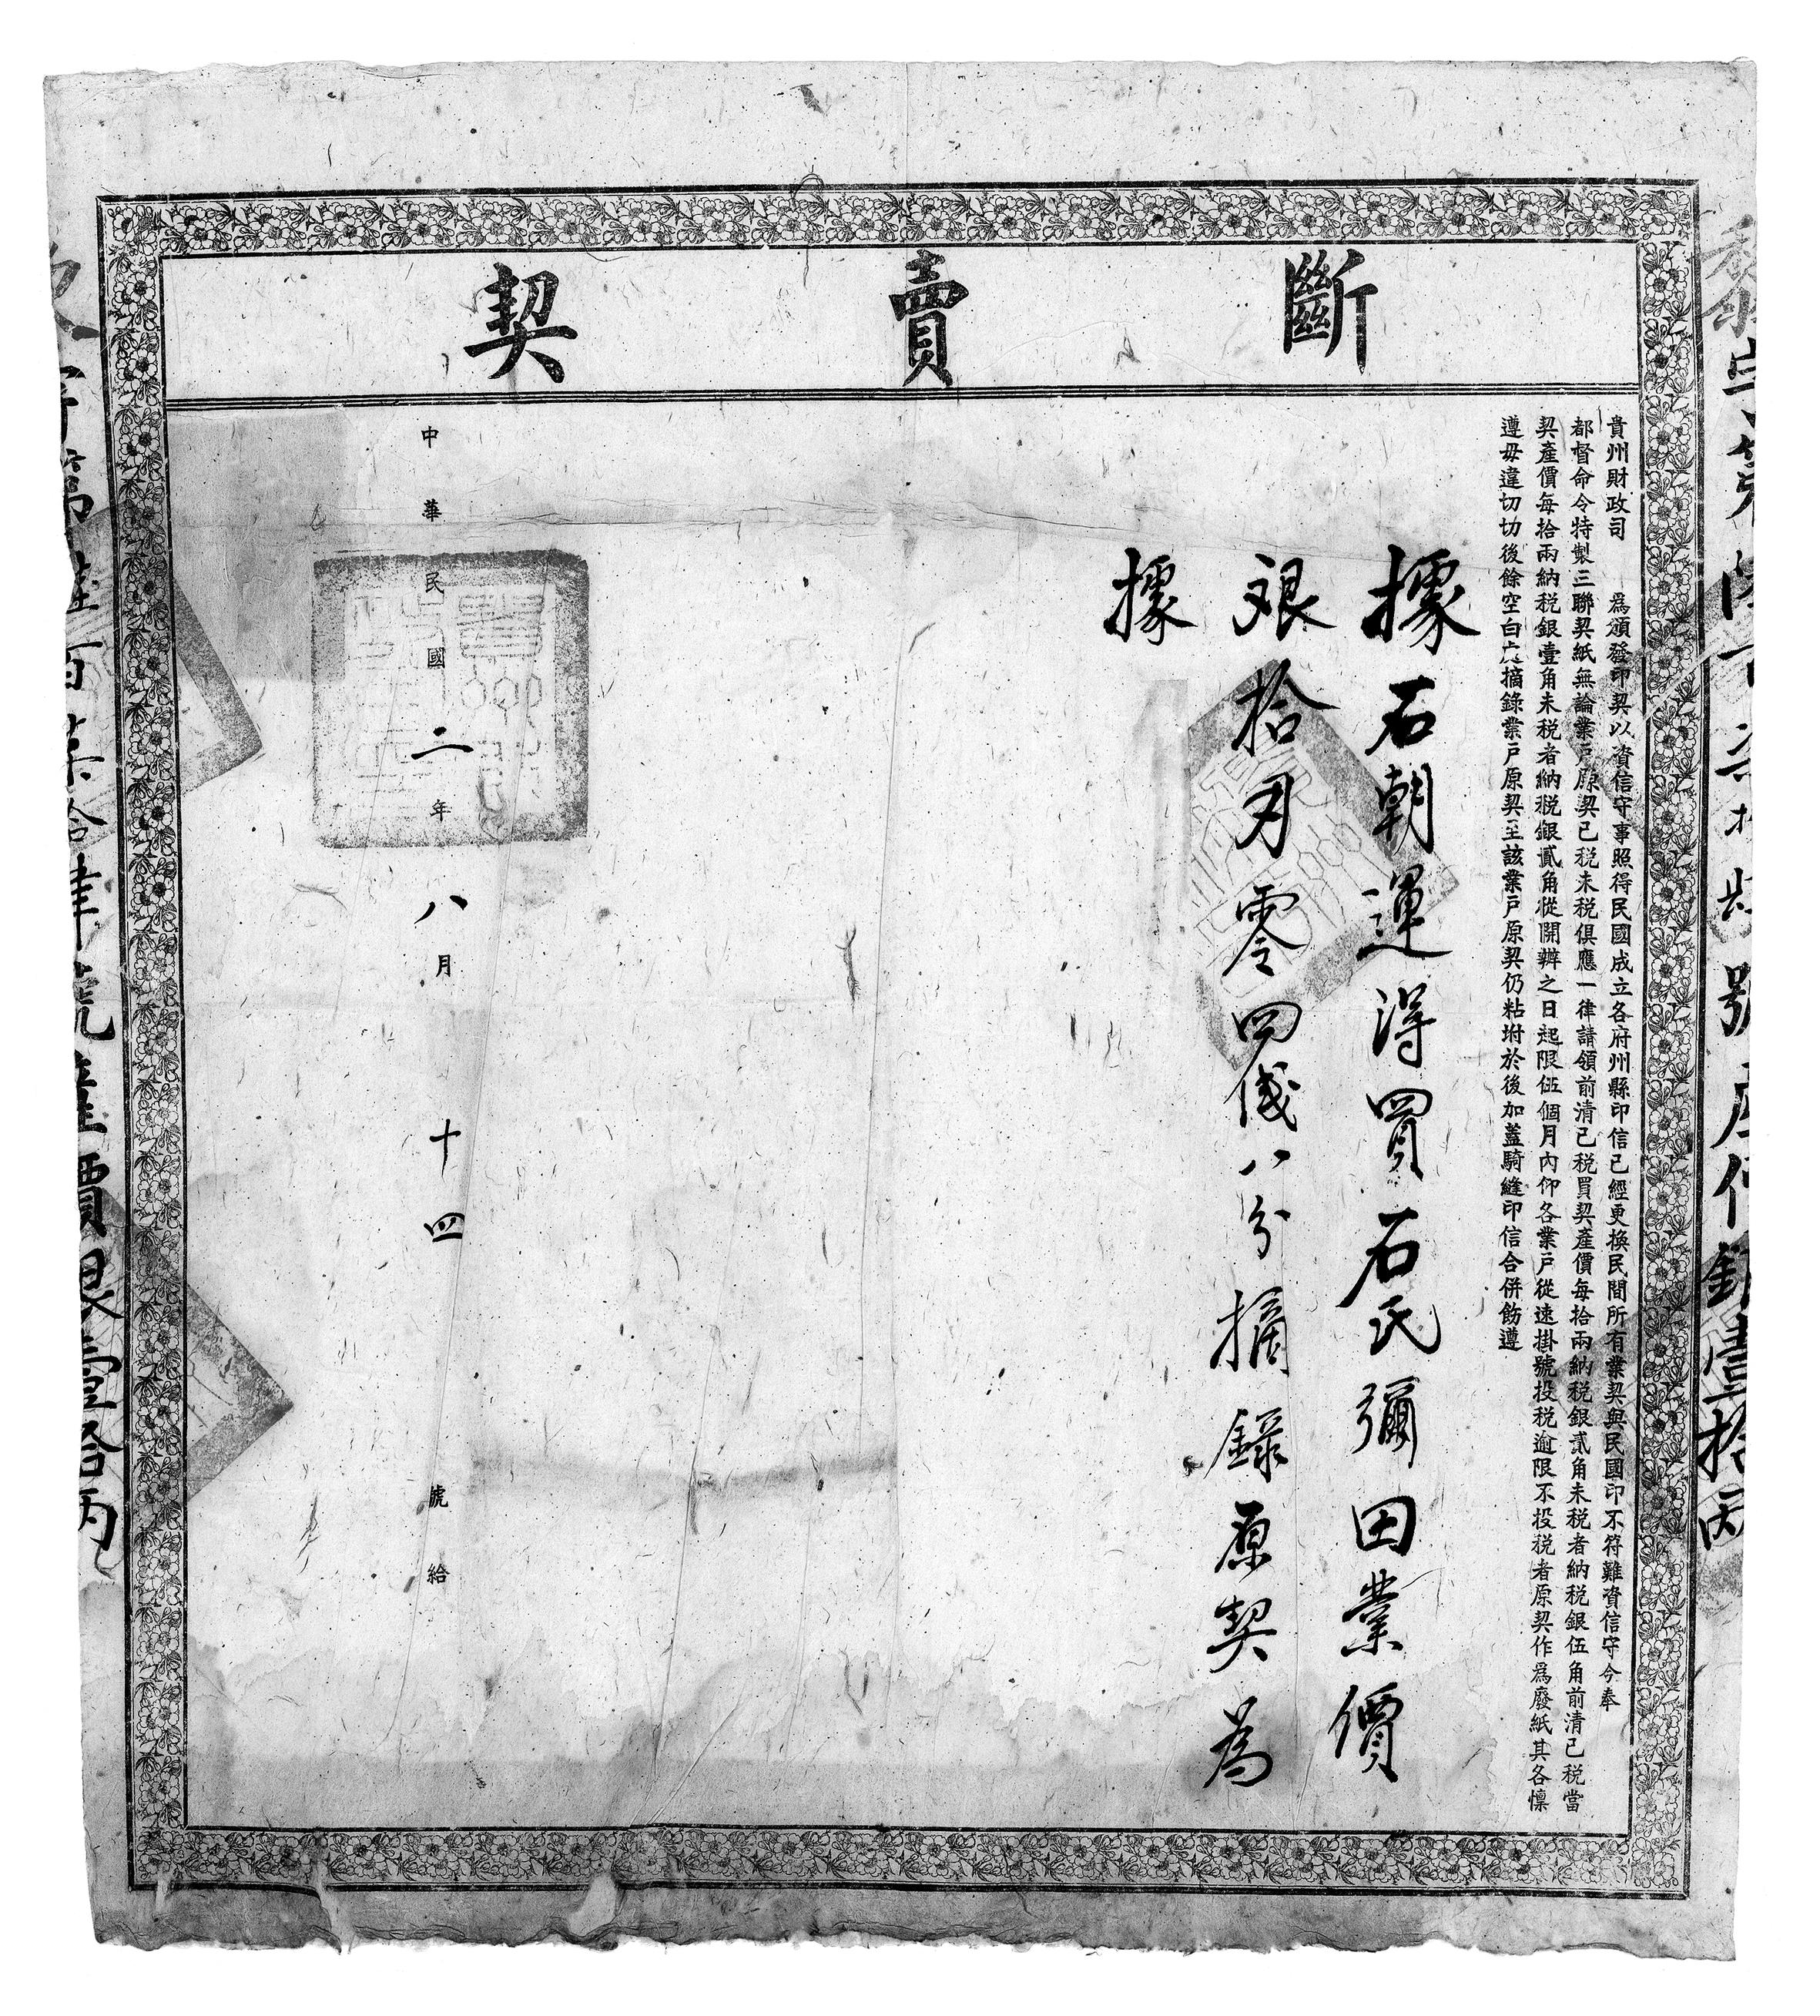 斷賣契
貴州財政司　為頒發印契以資信守事照得民國成立各府州縣印信已經更換民間所有業契與民國印不符難資信守今奉
都督命令特製三聯契紙無論業戶原契已稅未稅俱應一律請領前清已稅買契產價每拾兩納稅銀貳角未稅者納稅銀伍角前清已稅當
契產價每拾兩納稅銀壹角未稅者納稅銀貳角從開辦之日起限伍個月內仰各業戶從速掛號投稅逾限不投稅者原契作為廢紙其各懍
遵毋違切切後餘空白處摘錄業戶原契至該業戶原契仍粘坿於後加蓋騎縫印信合併飭遵
據石朝運得買石氏彌田業價
艮拾刄零四伐八分摘錄原契為
據
中華民國二年八月十四　號給
字第百柒拾肆號產價艮壹拾兩
號產價銀壹拾兩